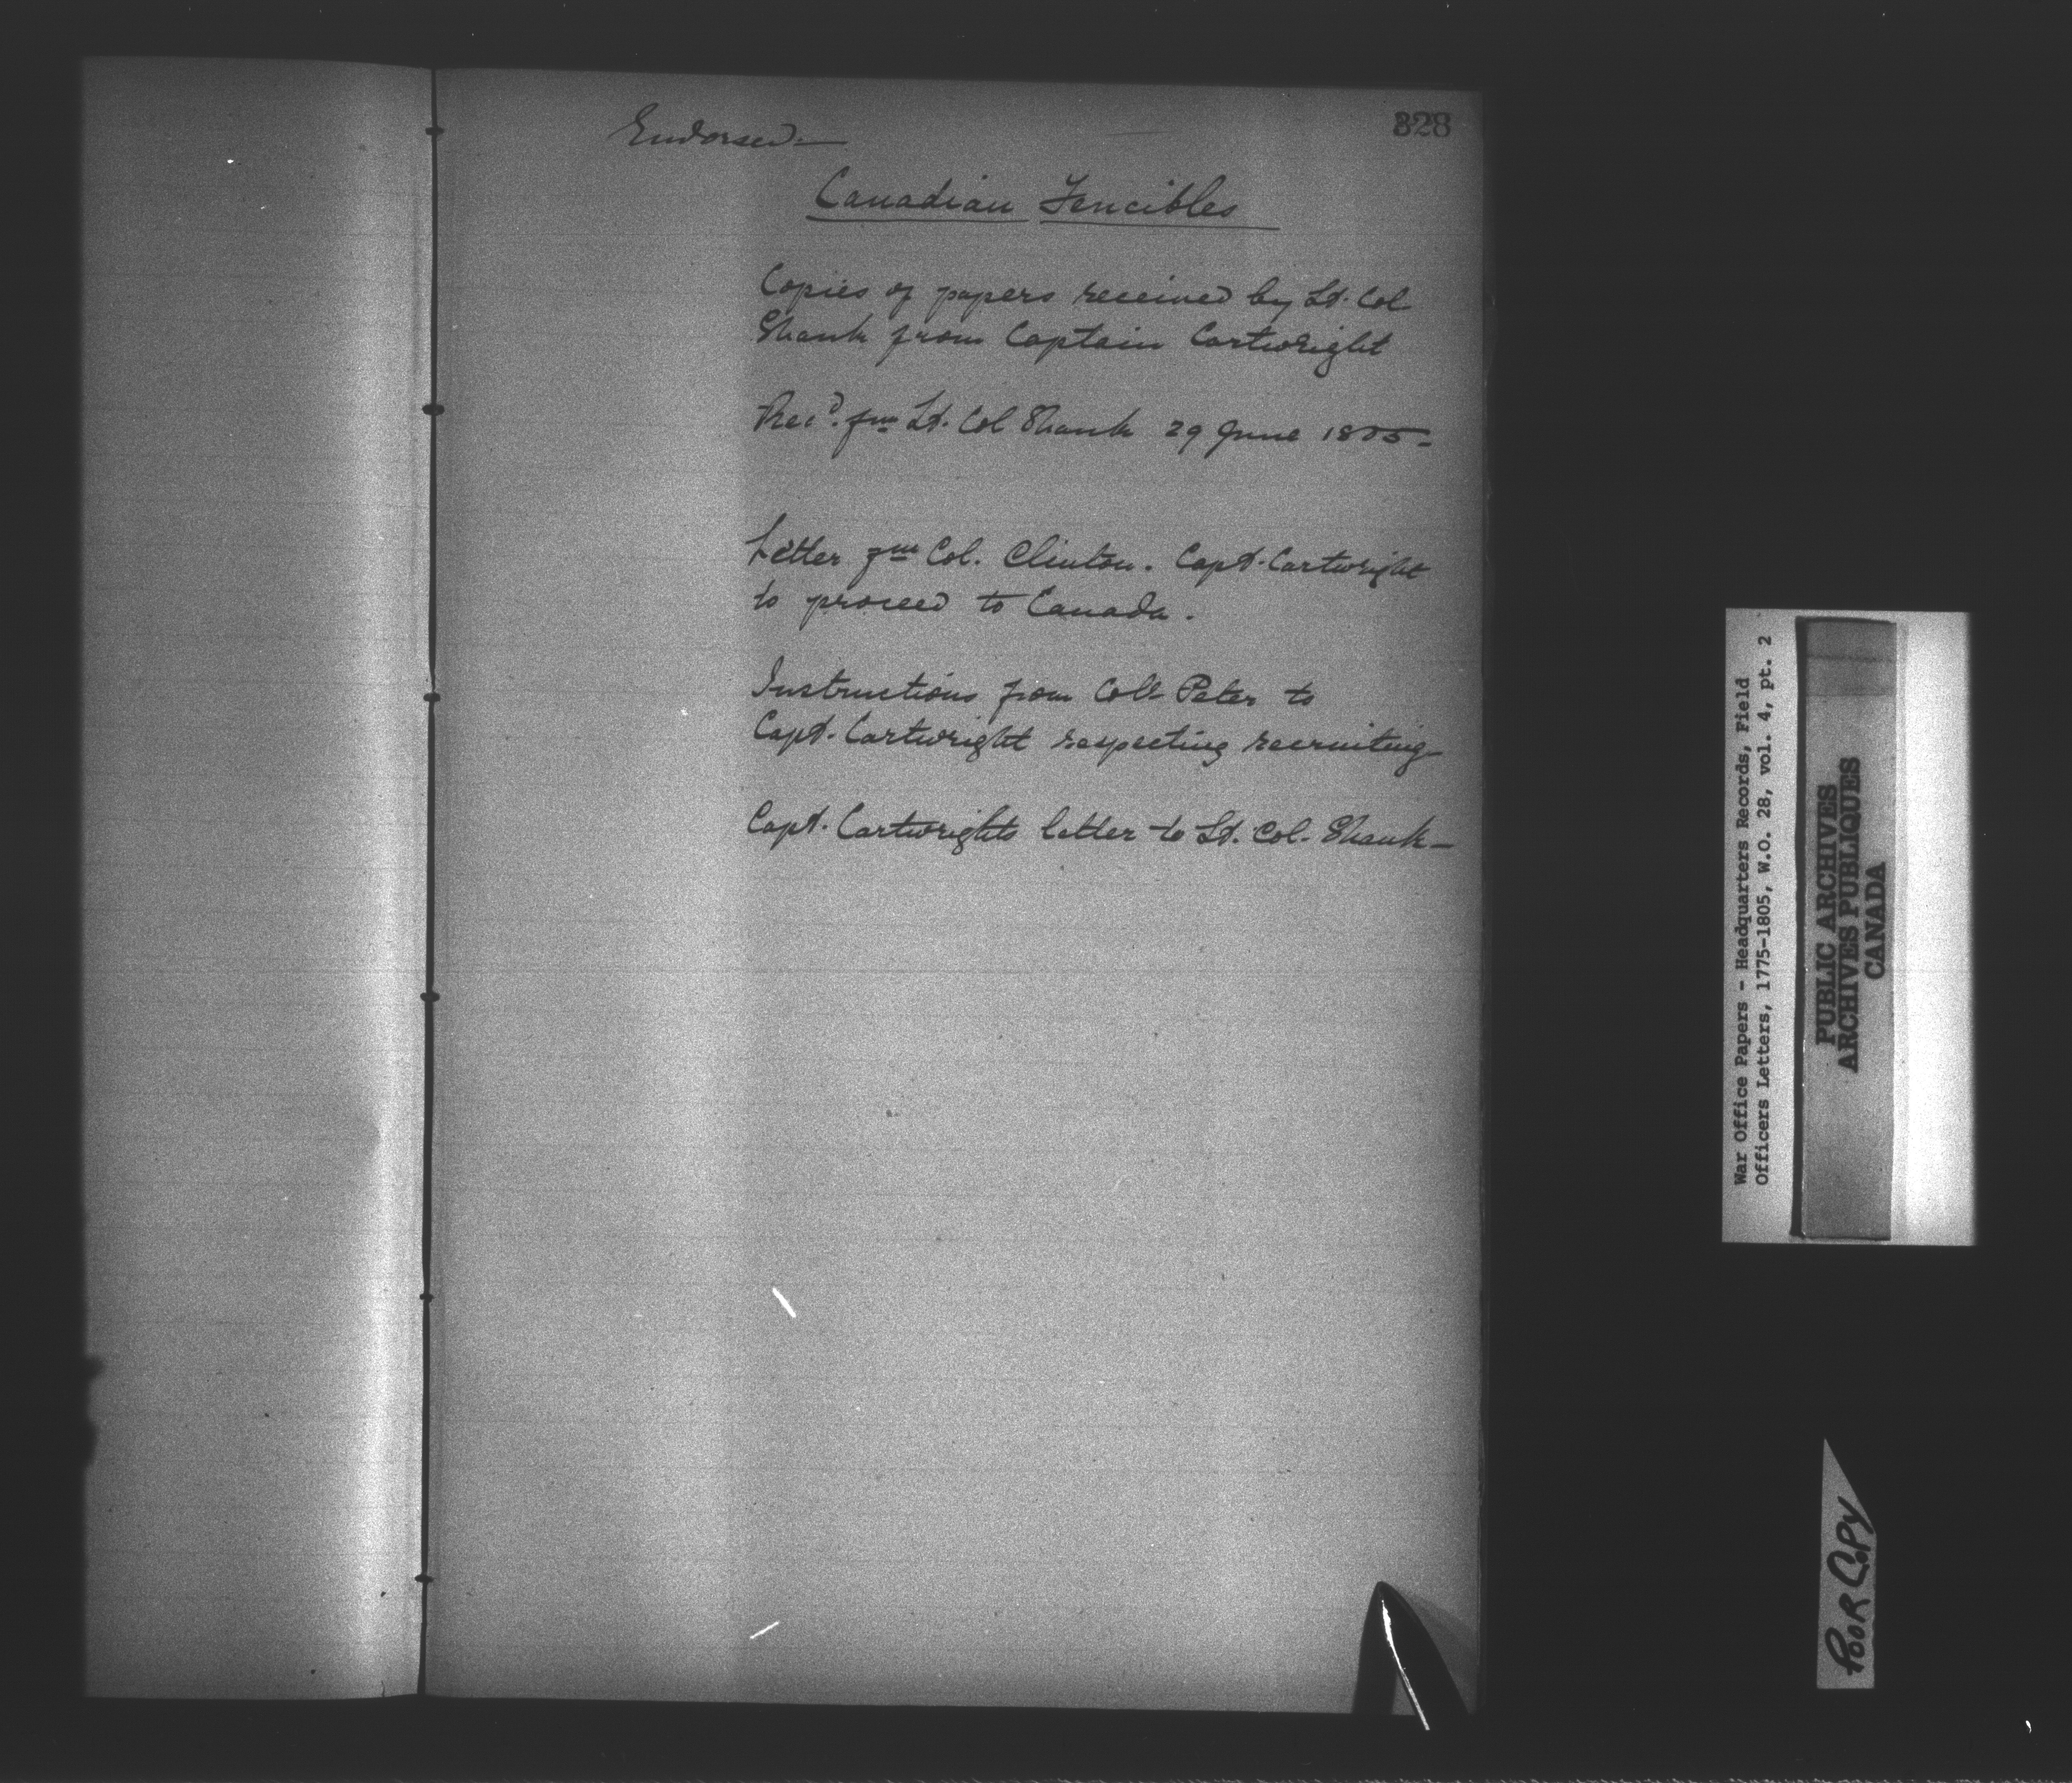 328
Endorsed—
Canadian Fencibles
Copies of papers received by Lt. Col
Shank from Captain Cartwright
Recd. fm Lt. Col Shank 29 June 1805—
Letter fm Col. Clinton. Capt. Cartwright
to proceed to Canada.
Instructions from Coll Peter to
Capt. Cartwright respecting recruiting
Capt. Cartwrights letter to Lt. Col. Shank—
War Office Papers - Headquarters Records, Field
Officers Letters, 1775-1805, W.O. 28, vol. 4, pt. 2
PUBLIC ARCHIVES
ARCHIVES PUBLIQUES
CANADA
POOR COPY